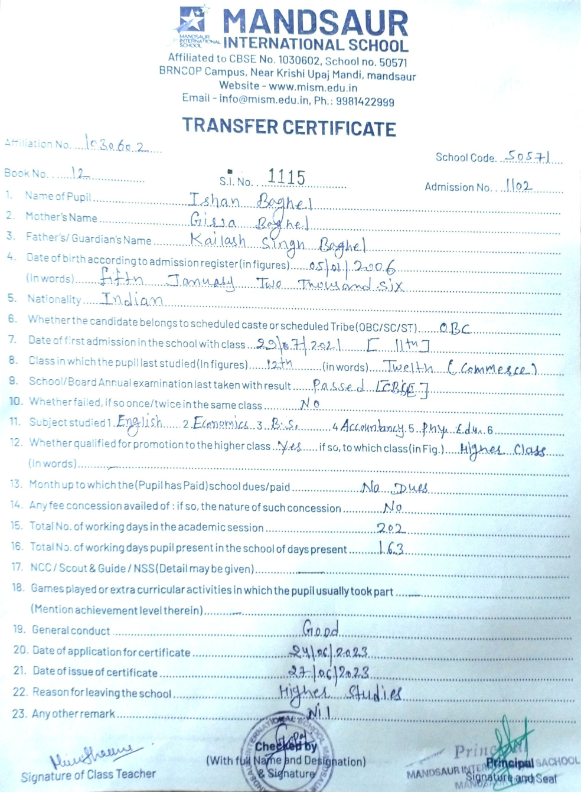 MANDSAUR
INTERNATIONAL SCHOOL
MANDSAUR
INTERNATIONAL
SCHOOL
Affiliated to CBSE No. 1030602, School no. 50571
BRNCOP Campus, Near Krishi Upaj Mandi, mandsaur
Website - www.mism.edu.in
Email - info@mism.edu.in, Ph.: 9981422999
TRANSFER CERTIFICATE
Affiliation No. 1030602
School Code. 50571
Book No. 12
S.I. No. 1115
Admission No. 1102
1. Name of Pupil Ishan Baghel
2. Mother's Name Baghel
3. Father's/ Guardian's Name Kailash Singh Baghel
4. Date of birth according to admission register(in figures) 05/01/2006
(In words) fifth January Two Thousand six
5. Nationality Indian
6. Whether the candidate belongs to scheduled caste or scheduled Tribe(OBC/SC/ST) OBC
7. Date of first admission in the school with class 29/07/2021 [11th]
8. Class in which the pupil last studied(In figures) 12th (in words) Twelth (Commerce)
9. School/Board Annual examination last taken with result Passed [CBSE]
10. Whether failed, if so once/twice in the same class NO
11. Subject studied 1. English 2. Economics 3. B.S. 4 Accountancy 5. Phy. Edu. 6.
12. Whether qualified for promotion to the higher class Yes if so, to which class(in Fig.) Higher Class
(In words)
13. Month up to which the(Pupil has Paid) school dues/paid No Dues
14. Any fee concession availed of : if so, the nature of such concession No
15. Total No. of working days in the academic session 202
16. Total No. of working days pupil present in the school of days present 163
17. NCC / Scout & Guide / NSS(Detail may be given)
18. Games played or extra curricular activities in which the pupil usually took part
(Mention achievement level therein)
19. General conduct Good
20. Date of application for certificate 24/06/2023
21. Date of issue of certificate 27/06/2023
22. Reason for leaving the school Higher Studies
23. Any other remark Nil
Signature of Class Teacher
Checked by
(With full Name and Designation)
& Signature
Principal
Signature and Seal